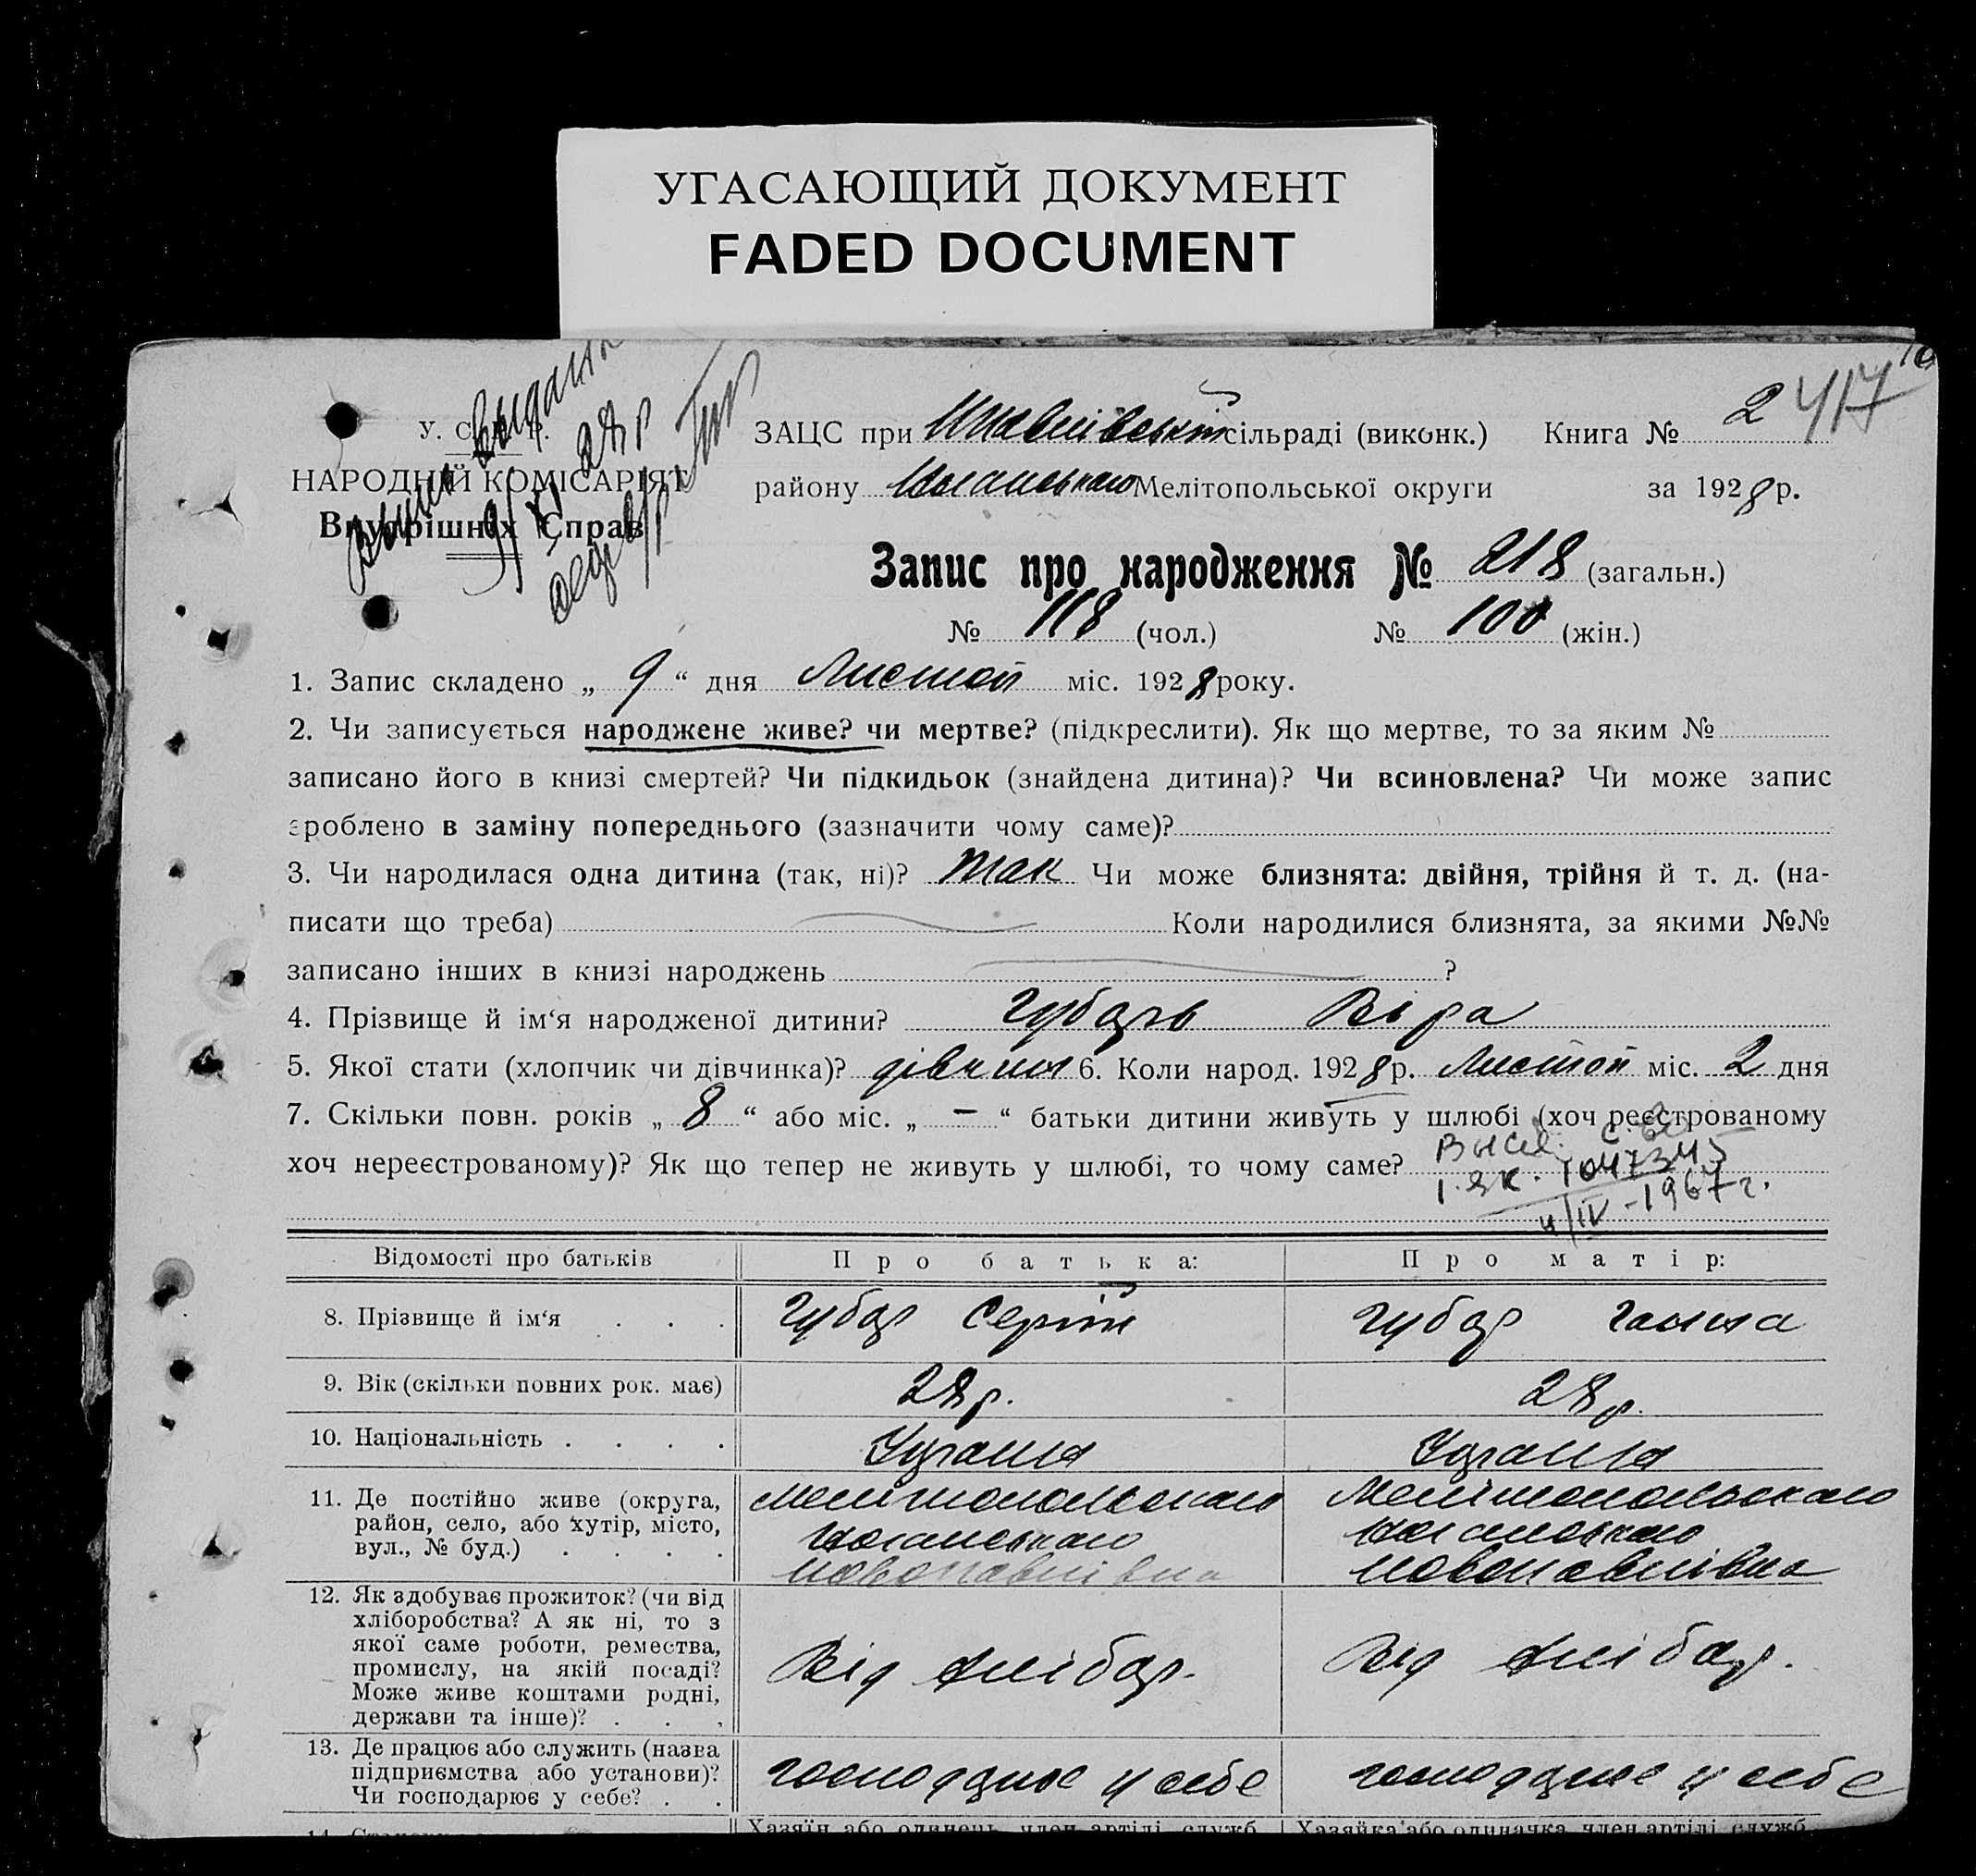 УГАСАЮЩИЙ ДОКУМЕНТ
FADED DOCUMENT
2 417
У. С. Р. Р.
НАРОДНІЙ КОМІСАРІЯТ
Внутрішніх Справ
ЗАЦС при сільраді (виконк.) Книга № 2
району Ногаського Мелітопольської округи за 1928 р.
Запис про народження № 218 (загальн.)
№ 118 (чол.) № 100 (жін.)
1. Запис складено „ 9 “ дня Листоп міс. 1928 року.
2. Чи записується народжене живе? чи мертве? (підкреслити). Як що мертве, то за яким №
записано його в книзі смертей? Чи підкидьок (знайдена дитина)? Чи всиновлена? Чи може запис
зроблено в заміну попереднього (зазначити чому саме)?
3. Чи народилася одна дитина (так, ні)? так Чи може близнята: двійня, трійня й т. д. (на-
писати що треба) Коли народилися близнята, за якими №№
записано інших в книзі народжень ?
4. Прізвище й ім‘я народженої дитини? Губарь Віра
5. Якої стати (хлопчик чи дівчинка)? дівчина 6. Коли народ. 1928 р. Листоп міс. 2 дня
7. Скільки повн. років „ 8 “ або міс. „ — “ батьки дитини живуть у шлюбі (хоч реєстрованому
хоч нереєстрованому)? Як що тепер не живуть у шлюбі, то чому саме?
1047345
4/IV-1967г.
Відомості про батьків Про батька: Про матір:
8. Прізвище й ім‘я Губар Сергій Губар Ганна
9. Вік (скільки повних рок. має) 28 р. 28 р.
10. Національність Україн Україн
11. Де постійно живе (округа, район, село, або хутір, місто, вул., № буд.)
Мелітопольського Мелітопольського
Ногаського Ногаського
Новопавлівка Новопавлівка
12. Як здобуває прожиток? (чи від
хліборобства? А як ні, то з
якої саме роботи, ремества,
промислу, на якій посаді?
Може живе коштами родні,
держави та інше)?
Від хлібор. Від хлібор.
13. Де працює або служить (назва
підприємства або установи)?
Чи господарює у себе?
господарює у себе господарює у себе
Хазяїн або одинець, член артілі, служб. Хазяйка або одиначка, член артілі, служб.